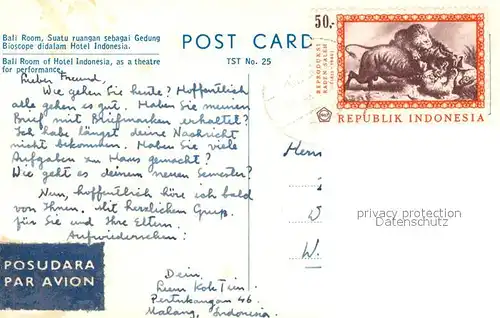 Bali Room, Suatu ruangan sebagai Gedung
Bioscope didalam Hotel Indonesia.
Bali Room of Hotel Indonesia, as a theatre
for performance.
POST CARD
TST No. 25
50.-
REPRODUKSI
RADEN SALEH
REPUBLIK INDONESIA
Lieber Freund,
Wie gehen Sie heute? Hoffentlich
alle gehen es gut. Haben Sie meinen
Brief mit Briefmarken erhaltet?
Ich habe längst deine Nachricht
nicht bekommen. Haben Sie viele
Aufgaben zu Haus gemacht?
Wie geht es deinem neuen Semester?
Nun, hoffentlich höre ich bald
von Ihnen. Mit herzlichen Gruß
für Sie und Ihre Eltern.
Aufwiederschen:
Dein,
Liem Kok Tien
Pertukangan 46
Malang, Indonesia.
Herrn
W.
POSUDARA
PAR AVION
privacy protection
Datenschutz